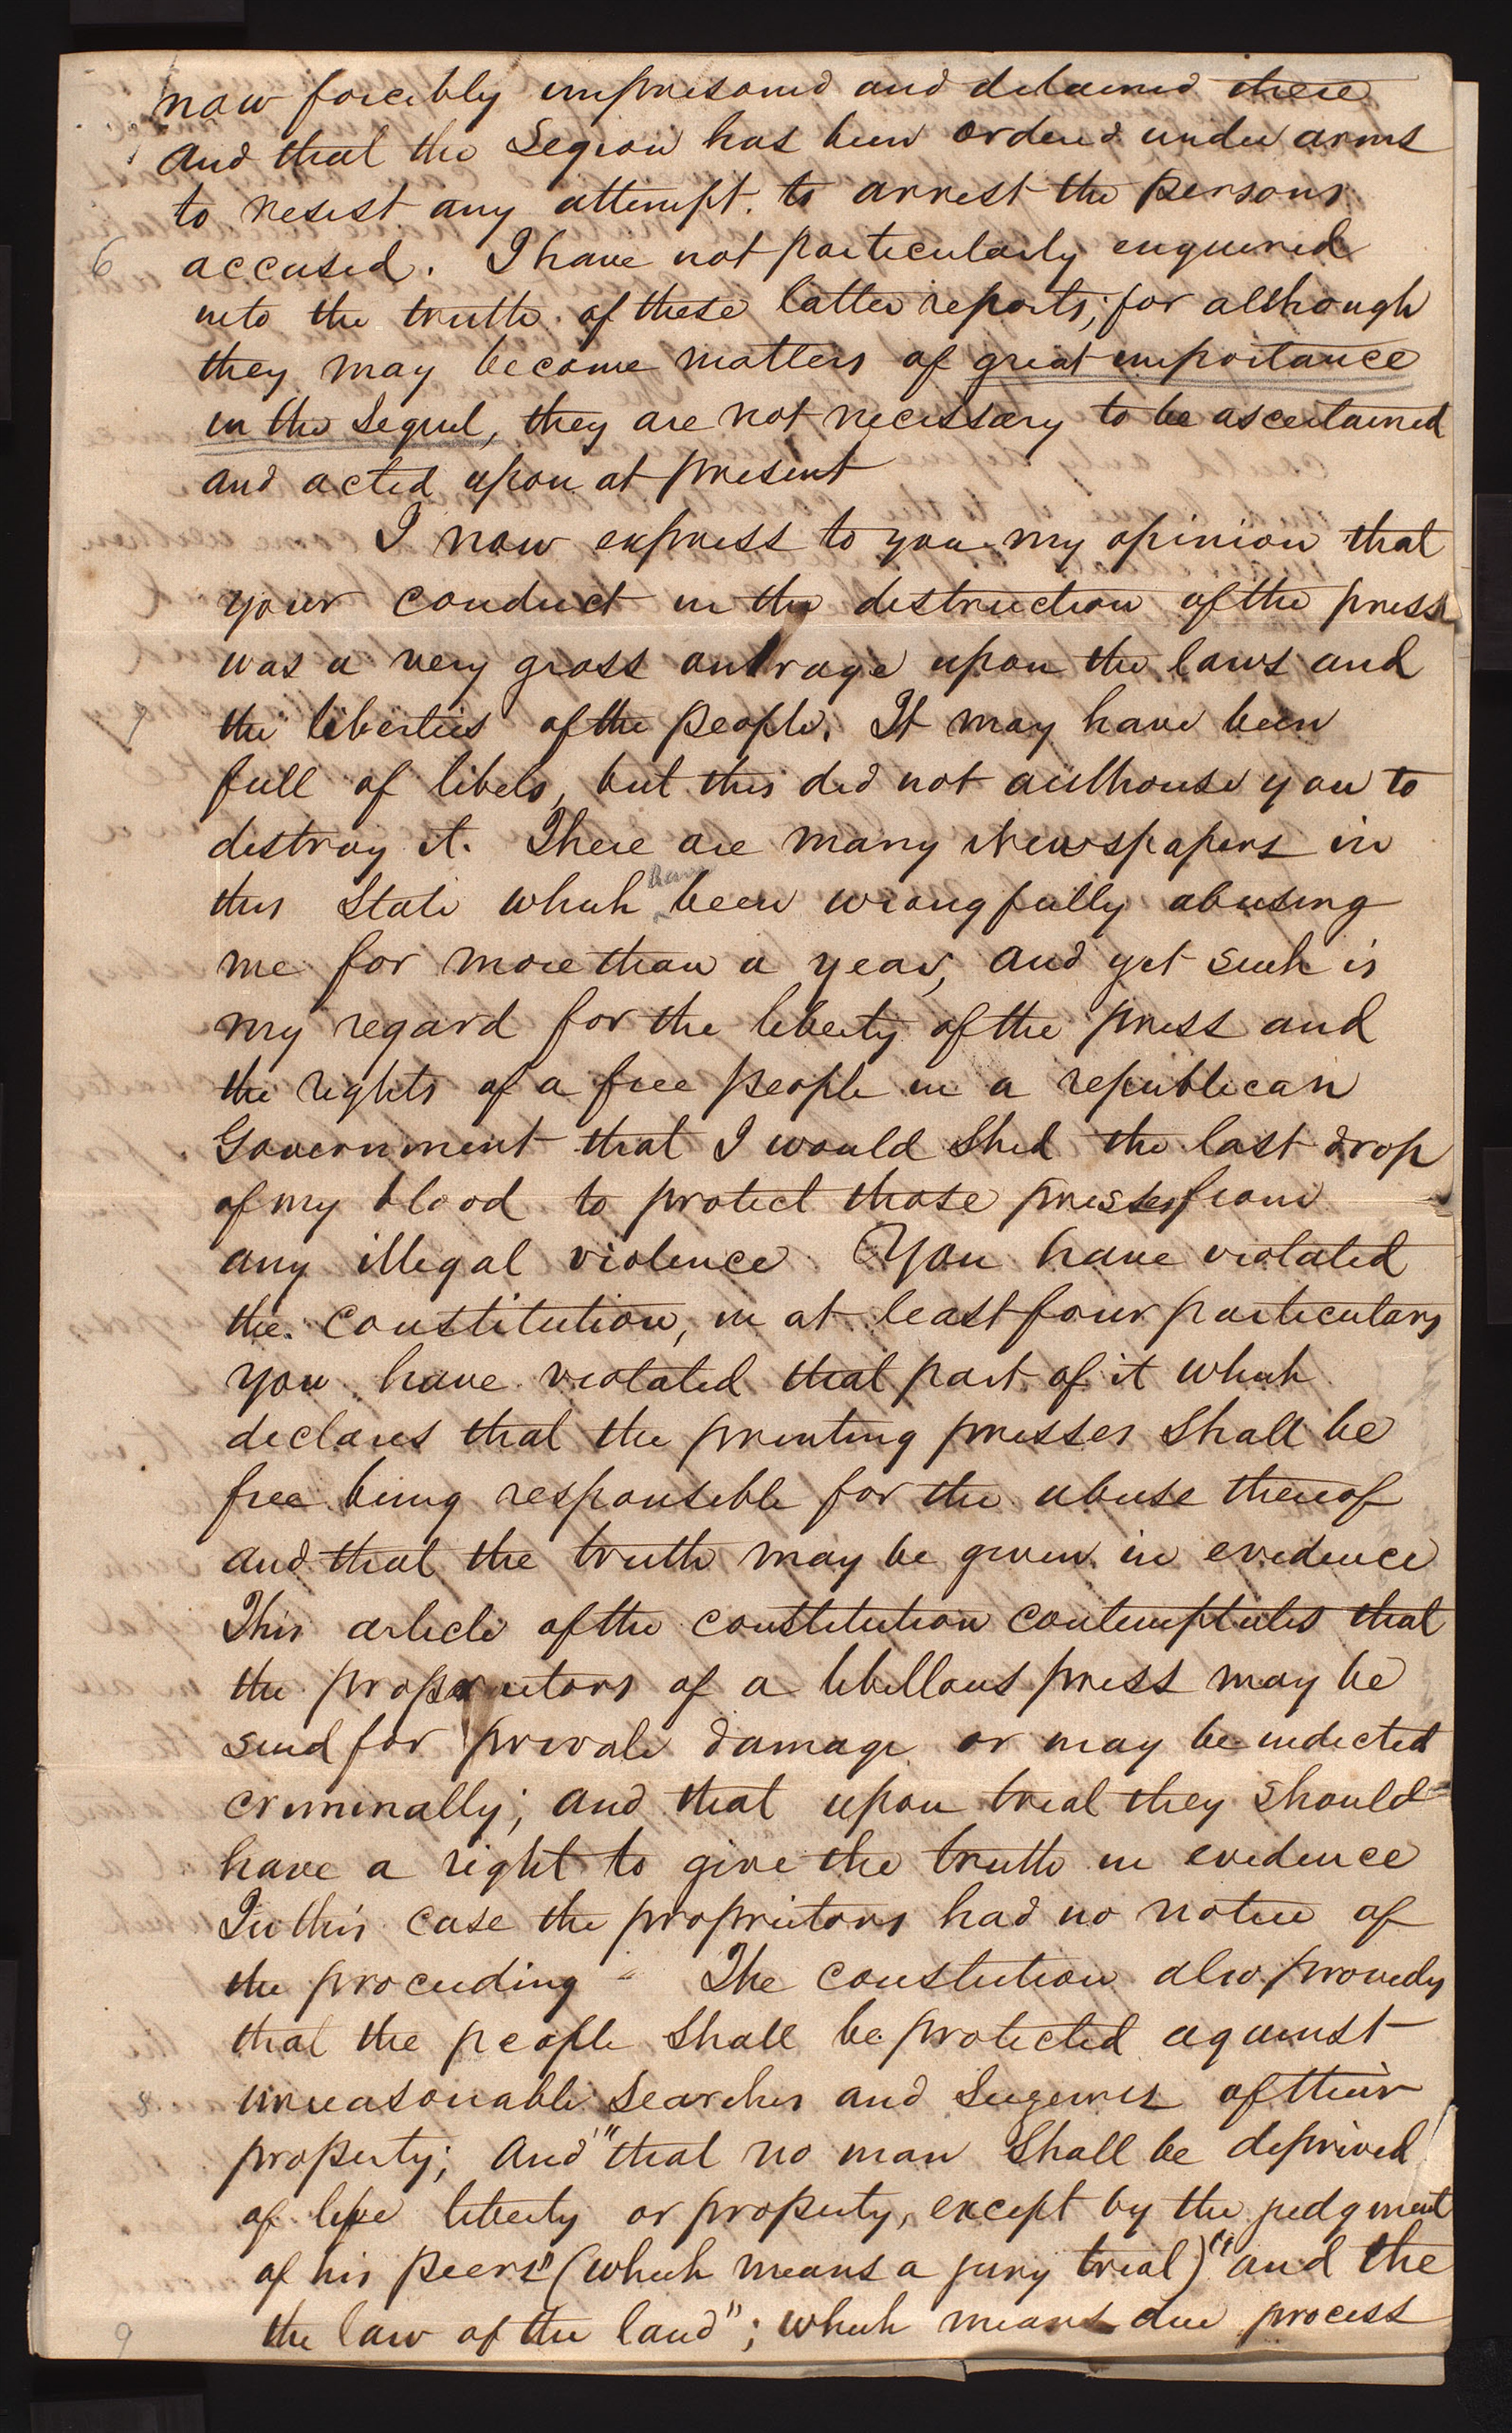 now forcibly imprisoned and detained there
and that the Legion has been ordered under arms
to resist any attempt. to arrest the persons
6 accused. I have not particularly enquired
into the truth of these latter reports; for although
they may become matters of great importance
in the Sequel, they are not necessary to be ascertained
and acted upon at present
I now express to you my opinion that
your conduct in the destruction of the press
was a very gross outrage upon the laws and
7 the liberties of the people. It may have been
full of libels, but this did not authorise you to
destroy it. There are many Newspapers in
this State which have been wrongfully abusing
me for more than a year, and yet such is
my regard for the liberty of the press and
the rights of a free people in a republican
Government that I would shed the last drop
of my blood to protect those presses from
any illegal violence. You have violated
the constitution, in at least four particulars
you have violated that part of it which
declares that the printing presses shall be
free being responsible for the abuse thereof
and that the truth may be given in evidence
This article of the constitution contemplates that
the proprietors of a libellous press may be
sued for private damage or may be indicted
criminally; and that upon trial they should
have a right to give the truth in evidence
In this case the proprietors had no notice of
the proceeding - The constution also provides
that the people shall be protected against
8 unreasonable Searches and Seizures of their
property; and "that no man shall be deprived
of life liberty or property, except by the judgment
of his peers" (which means a jury trial) "and the
9 the law of the land"; which means due process